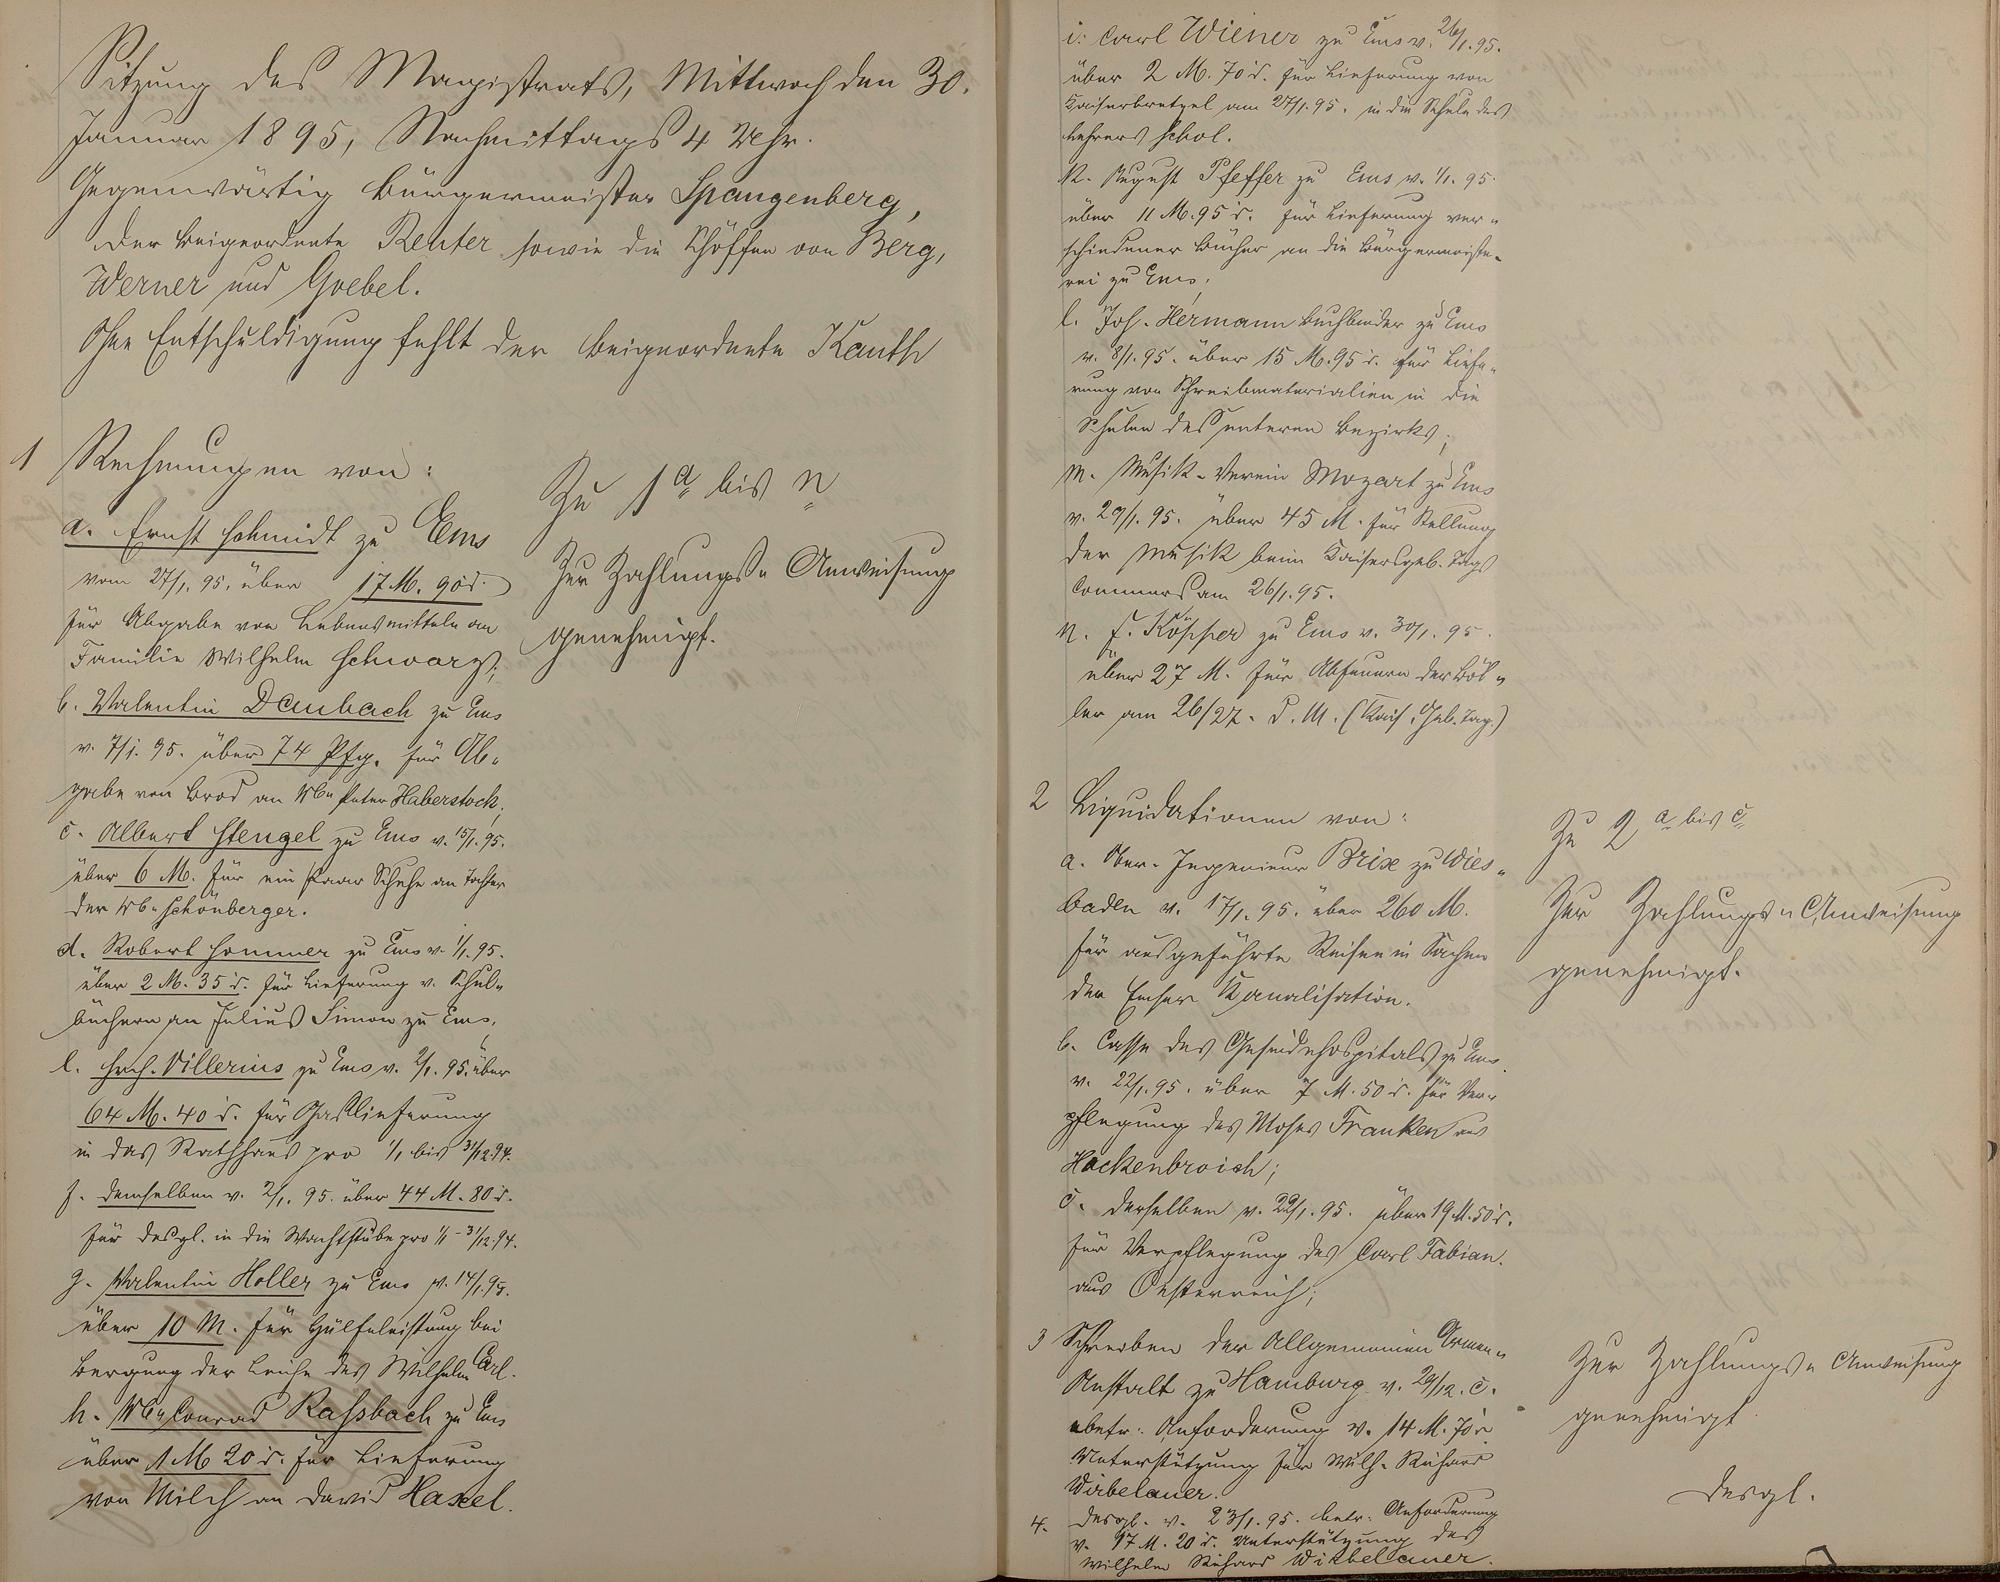 Sitzung des Magistrats, Mittwoch den 30.
Januar 1895, Nachmittags 4 Uhr.
Gegenwärtig Bürgermeister Spangenberg,
der Beigeordnete Reuter sowie die Schöffen von Berg,
Werner und Goebel.
Ohne Entschuldigung fehlt der Beigeordnete Kauth
1 Rechnungen von:
a. Ernst Schmidt zu Ems
vom 27/1. 95. über 17 M. 90 d.
für Abgabe von Lebensmitteln an
Familie Wilhelm Schwarz;
b. Valentin Daubach zu Ems
v. 7/1. 95. über 74 Pfg. für Ab-
gabe von Brod an Wb. Peter Haberstock,
c. Albert Stengel zu Ems v. 15/1. 95.
über 6 M. für ein Paar Schuhe an Tochter
der Wb. Schönberger.
d. Robert Sommer zu Ems v. 1/1. 95.
über 2 M. 35 d. für Lieferung v. Schul-
büchern an Julius Simon zu Ems,
e. Hch. Villerius zu Ems v. 2/1. 95. über
64 M. 40 d. für Gaslieferung
in das Rathhaus pro 1/1 bis 31/12.94.
f. demselben v. 2/1. 95. über 44 M. 80 d.
für desgl. in die Wachtstube pro 1/1 - 31/12.94.
g. Valentin Holler zu Ems v. 14/1. 95.
über 10 M. für Hülfeleistung bei
Bergung der Leiche des Wilhelm Carl.
h. Wb. Conrad Raßbach zu Ems
über 1 M 20 d. für Lieferung
von Milch an David Hasel.
Zu 1 a bis n
Zur Zahlungs- Anweisung
genehmigt.
i: Carl Wiener zu Ems v. 26/1. 95.
über 2 M. 70 d. für Lieferung von
Kaiserbretzel am 27/1. 95. in die Schule des
Lehrers Schol.
k. August Pfeffer zu Ems v. 1/1. 95.
über 11 M. 95 d. für Lieferung ver-
schiedener Bücher an die Bürgermeiste-
rei zu Ems;
l. Joh. Hermann Buchbinder zu Ems
v. 8/1. 95. über 15 M. 95 d. für Liefe-
rung von Schreibmaterialien in die
Schulen des unteren Bezirks;
m. Musik-Verein Mozart zu Ems
v. 29/1. 95. über 45 M. für Stellung
der Musik beim Kaisersgeb. Tags
Commers am 26/1. 95.
n. F. Köpper zu Ems v. 30/1. 95.
über 27 M. für Abfeuern der Böl-
ler am 26/27. d. M. (Kais. Geb. Tag.)
2 Liquidationen von:
a. Ober-Ingenieur Brix zu Wies-
baden v. 17/1. 95. über 260 M.
für ausgeführte Reisen in Sachen
der Emser Kanalisation.
b. Casse des Gesindehospitals zu Ems
v. 22/1. 95. über 7 M. 50 d. für Ver-
pflegung des Moses Franken aus
Hackenbroich;
c. derselben v. 22/1. 95. über 19 M. 50 d.
für Verpflegung des Carl Fabian.
aus Oesterreich;
Zu 2 a bis c
Zur Zahlungs- Anweisung
genehmigt.
3 Schreiben der Allgemeinen Armen-
Anstalt zu Hamburg v. 29/12. c.
betr. Anforderung v. 14 M. 70 d
Unterstützung für Wilh. Richard
Wirbelauer.
Zur Zahlungs- Anweisung
genehmigt
4. desgl. v. 23/1. 95. betr. Anforderung
v. 17 M. 20 d. Unterstützung des
Wilhelm Richard Wirbelauer.
desgl.